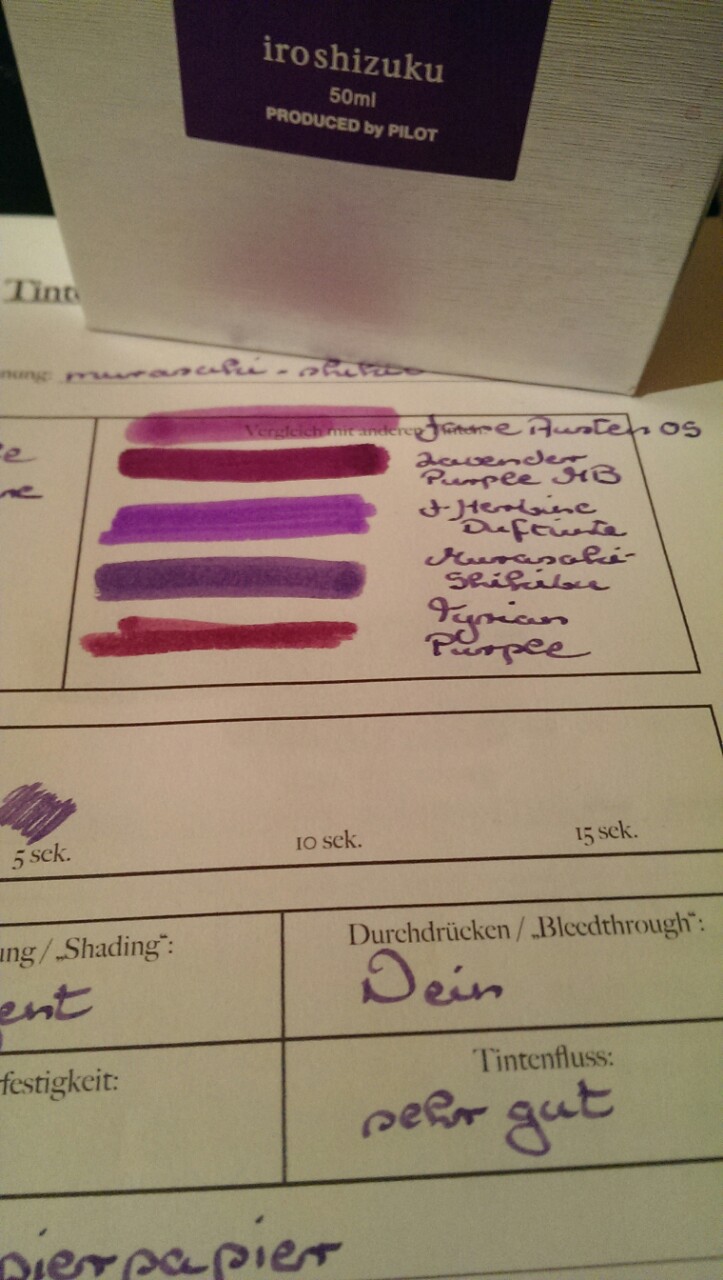 iroshizuku
50ml
PRODUCED by PILOT
Tint
nung: murasaki - shikibu
Vergleich mit anderen Tinten:
Jane Austen OS
Lavender
Purple MB
J. Herbine
Duftinte
Murasaki-
Shikibu
Tyrian
Purple
5 sek.
10 sek.
15 sek.
ung / „Shading“:
ent
Durchdrücken / „Bleedthrough“:
Nein
festigkeit:
Tintenfluss:
sehr gut
pierpapier